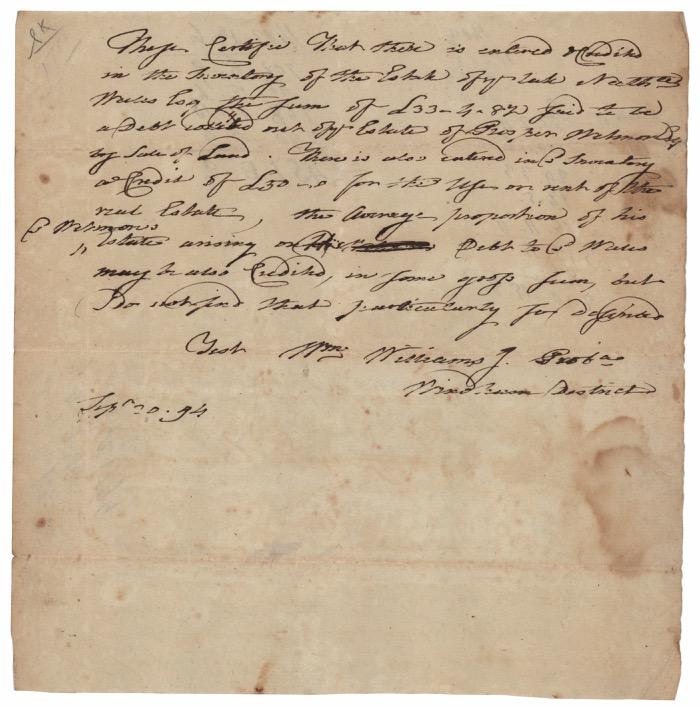 These Certifie That there is entered & Credited
in the Inventory of the Estate of ye late Nathll
Wales Esq the sum of £33-4-8½ said to be
a Debt out of ye Estate of Prosper Wetmore Esq
by Sale of Land. There is also entered in sd Inventory
a Credit of £50-.0 for the Use or rent of the
real Estate, the Average proportion of his
sd Wetmores
Estate arising on Debt to sd Wales
may be also Credited, in some gross sum, but
I do not find that particularly so
Test Wm Williams J. Probae
Windham District
Sepr 20. 94